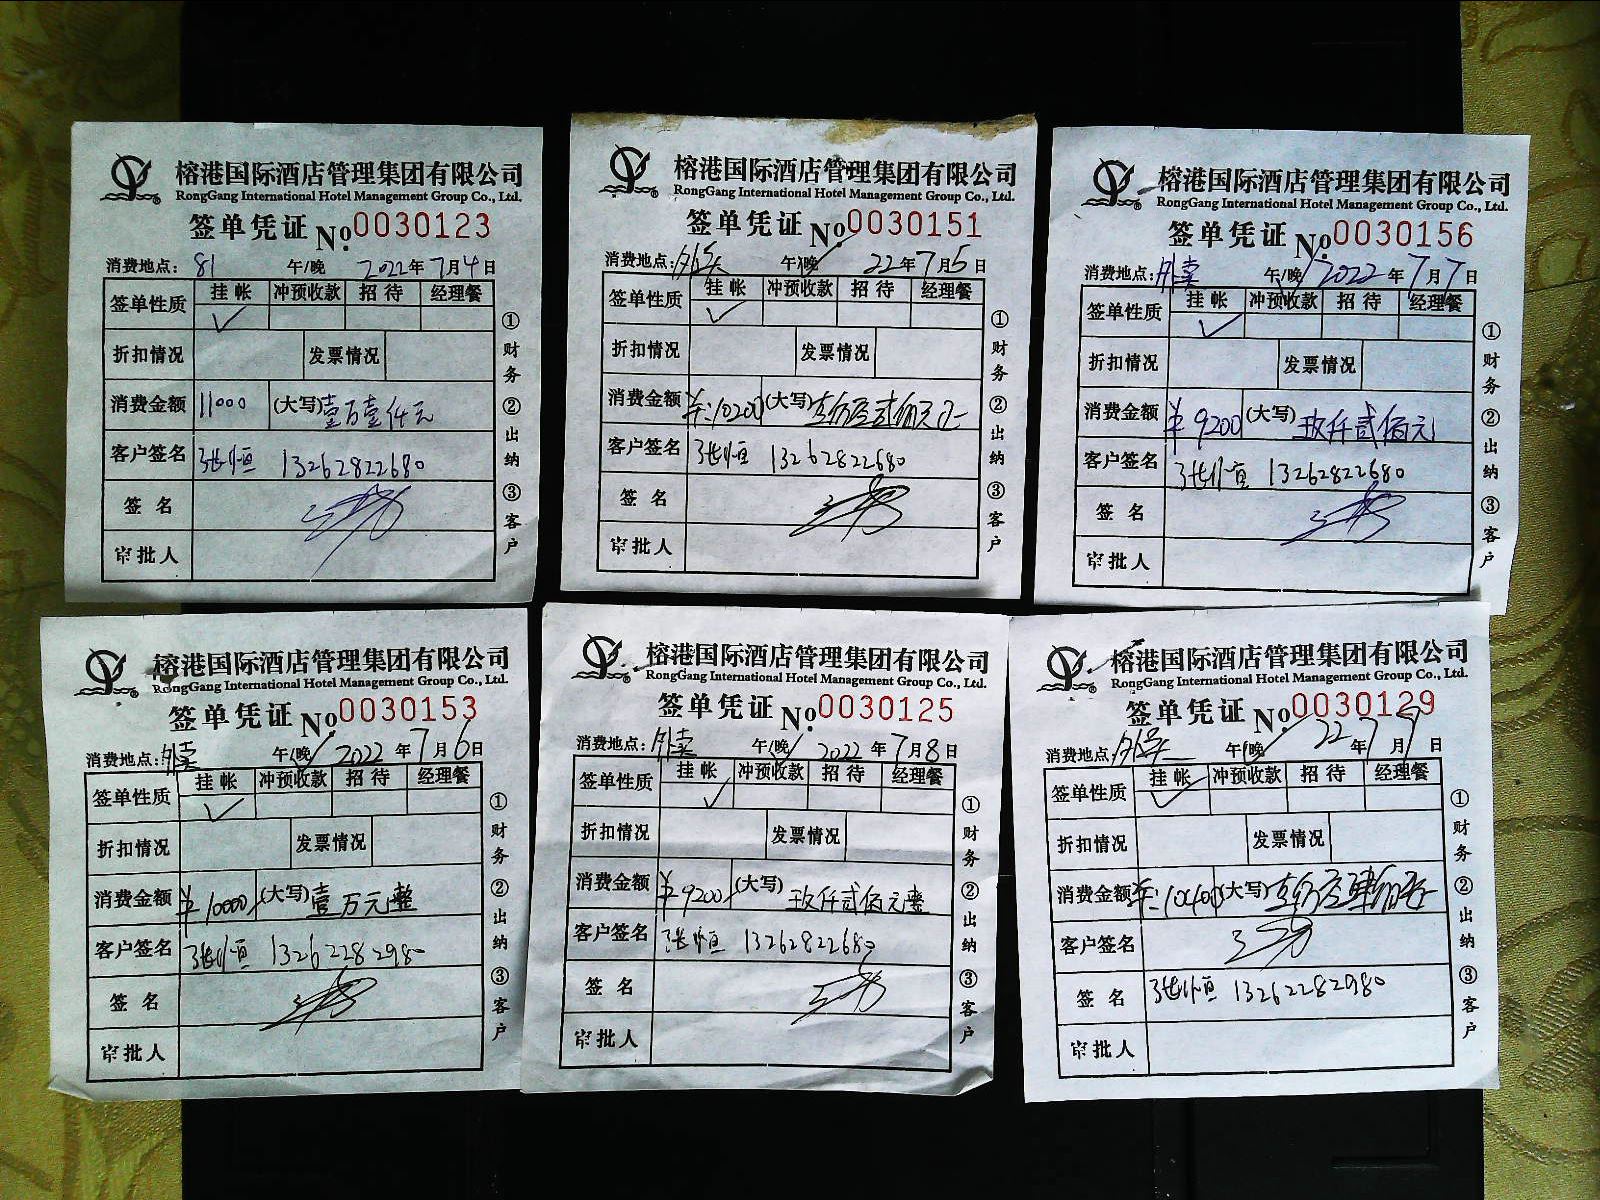 榕港国际酒店管理集团有限公司
RongGang International Hotel Management Group Co., Ltd.
签单凭证 No.0030123
消费地点：81 午/晚 2022年7月4日
签单性质 挂帐 冲预收款 招待 经理餐
✓
折扣情况 发票情况
消费金额 11000 (大写)壹万壹仟元
客户签名 张恒 13262822680
签名
审批人
①财务②出纳③客户
榕港国际酒店管理集团有限公司
RongGang International Hotel Management Group Co., Ltd.
签单凭证 No.0030151
消费地点：外卖 午/晚✓ 22年7月5日
签单性质 挂帐 冲预收款 招待 经理餐
✓
折扣情况 发票情况
消费金额 ¥:10200 (大写)
客户签名 张恒 13262822680
签名
审批人
①财务②出纳③客户
榕港国际酒店管理集团有限公司
RongGang International Hotel Management Group Co., Ltd.
签单凭证 No.0030156
消费地点：外卖 午/晚✓ 2022年7月7日
签单性质 挂帐 冲预收款 招待 经理餐
✓
折扣情况 发票情况
消费金额 ¥9200 (大写)玖仟贰佰元
客户签名 张恒 13262822680
签名
审批人
①财务②出纳③客户
榕港国际酒店管理集团有限公司
RongGang International Hotel Management Group Co., Ltd.
签单凭证 No.0030153
消费地点：外卖 午/晚✓ 2022年7月6日
签单性质 挂帐 冲预收款 招待 经理餐
✓
折扣情况 发票情况
消费金额 ¥10000 (大写)壹万元整
客户签名 张恒 13262282980
签名
审批人
①财务②出纳③客户
榕港国际酒店管理集团有限公司
RongGang International Hotel Management Group Co., Ltd.
签单凭证 No.0030125
消费地点：外卖 午/晚✓ 2022年7月8日
签单性质 挂帐 冲预收款 招待 经理餐
✓
折扣情况 发票情况
消费金额 ¥9200 (大写)玖仟贰佰元整
客户签名 张恒 13262822680
签名
审批人
①财务②出纳③客户
榕港国际酒店管理集团有限公司
RongGang International Hotel Management Group Co., Ltd.
签单凭证 No.0030129
消费地点：外卖 午/晚✓ 22年7月9日
签单性质 挂帐 冲预收款 招待 经理餐
✓
折扣情况 发票情况
消费金额 ¥:10400 (大写)
客户签名
签名 张恒 13262282980
审批人
①财务②出纳③客户